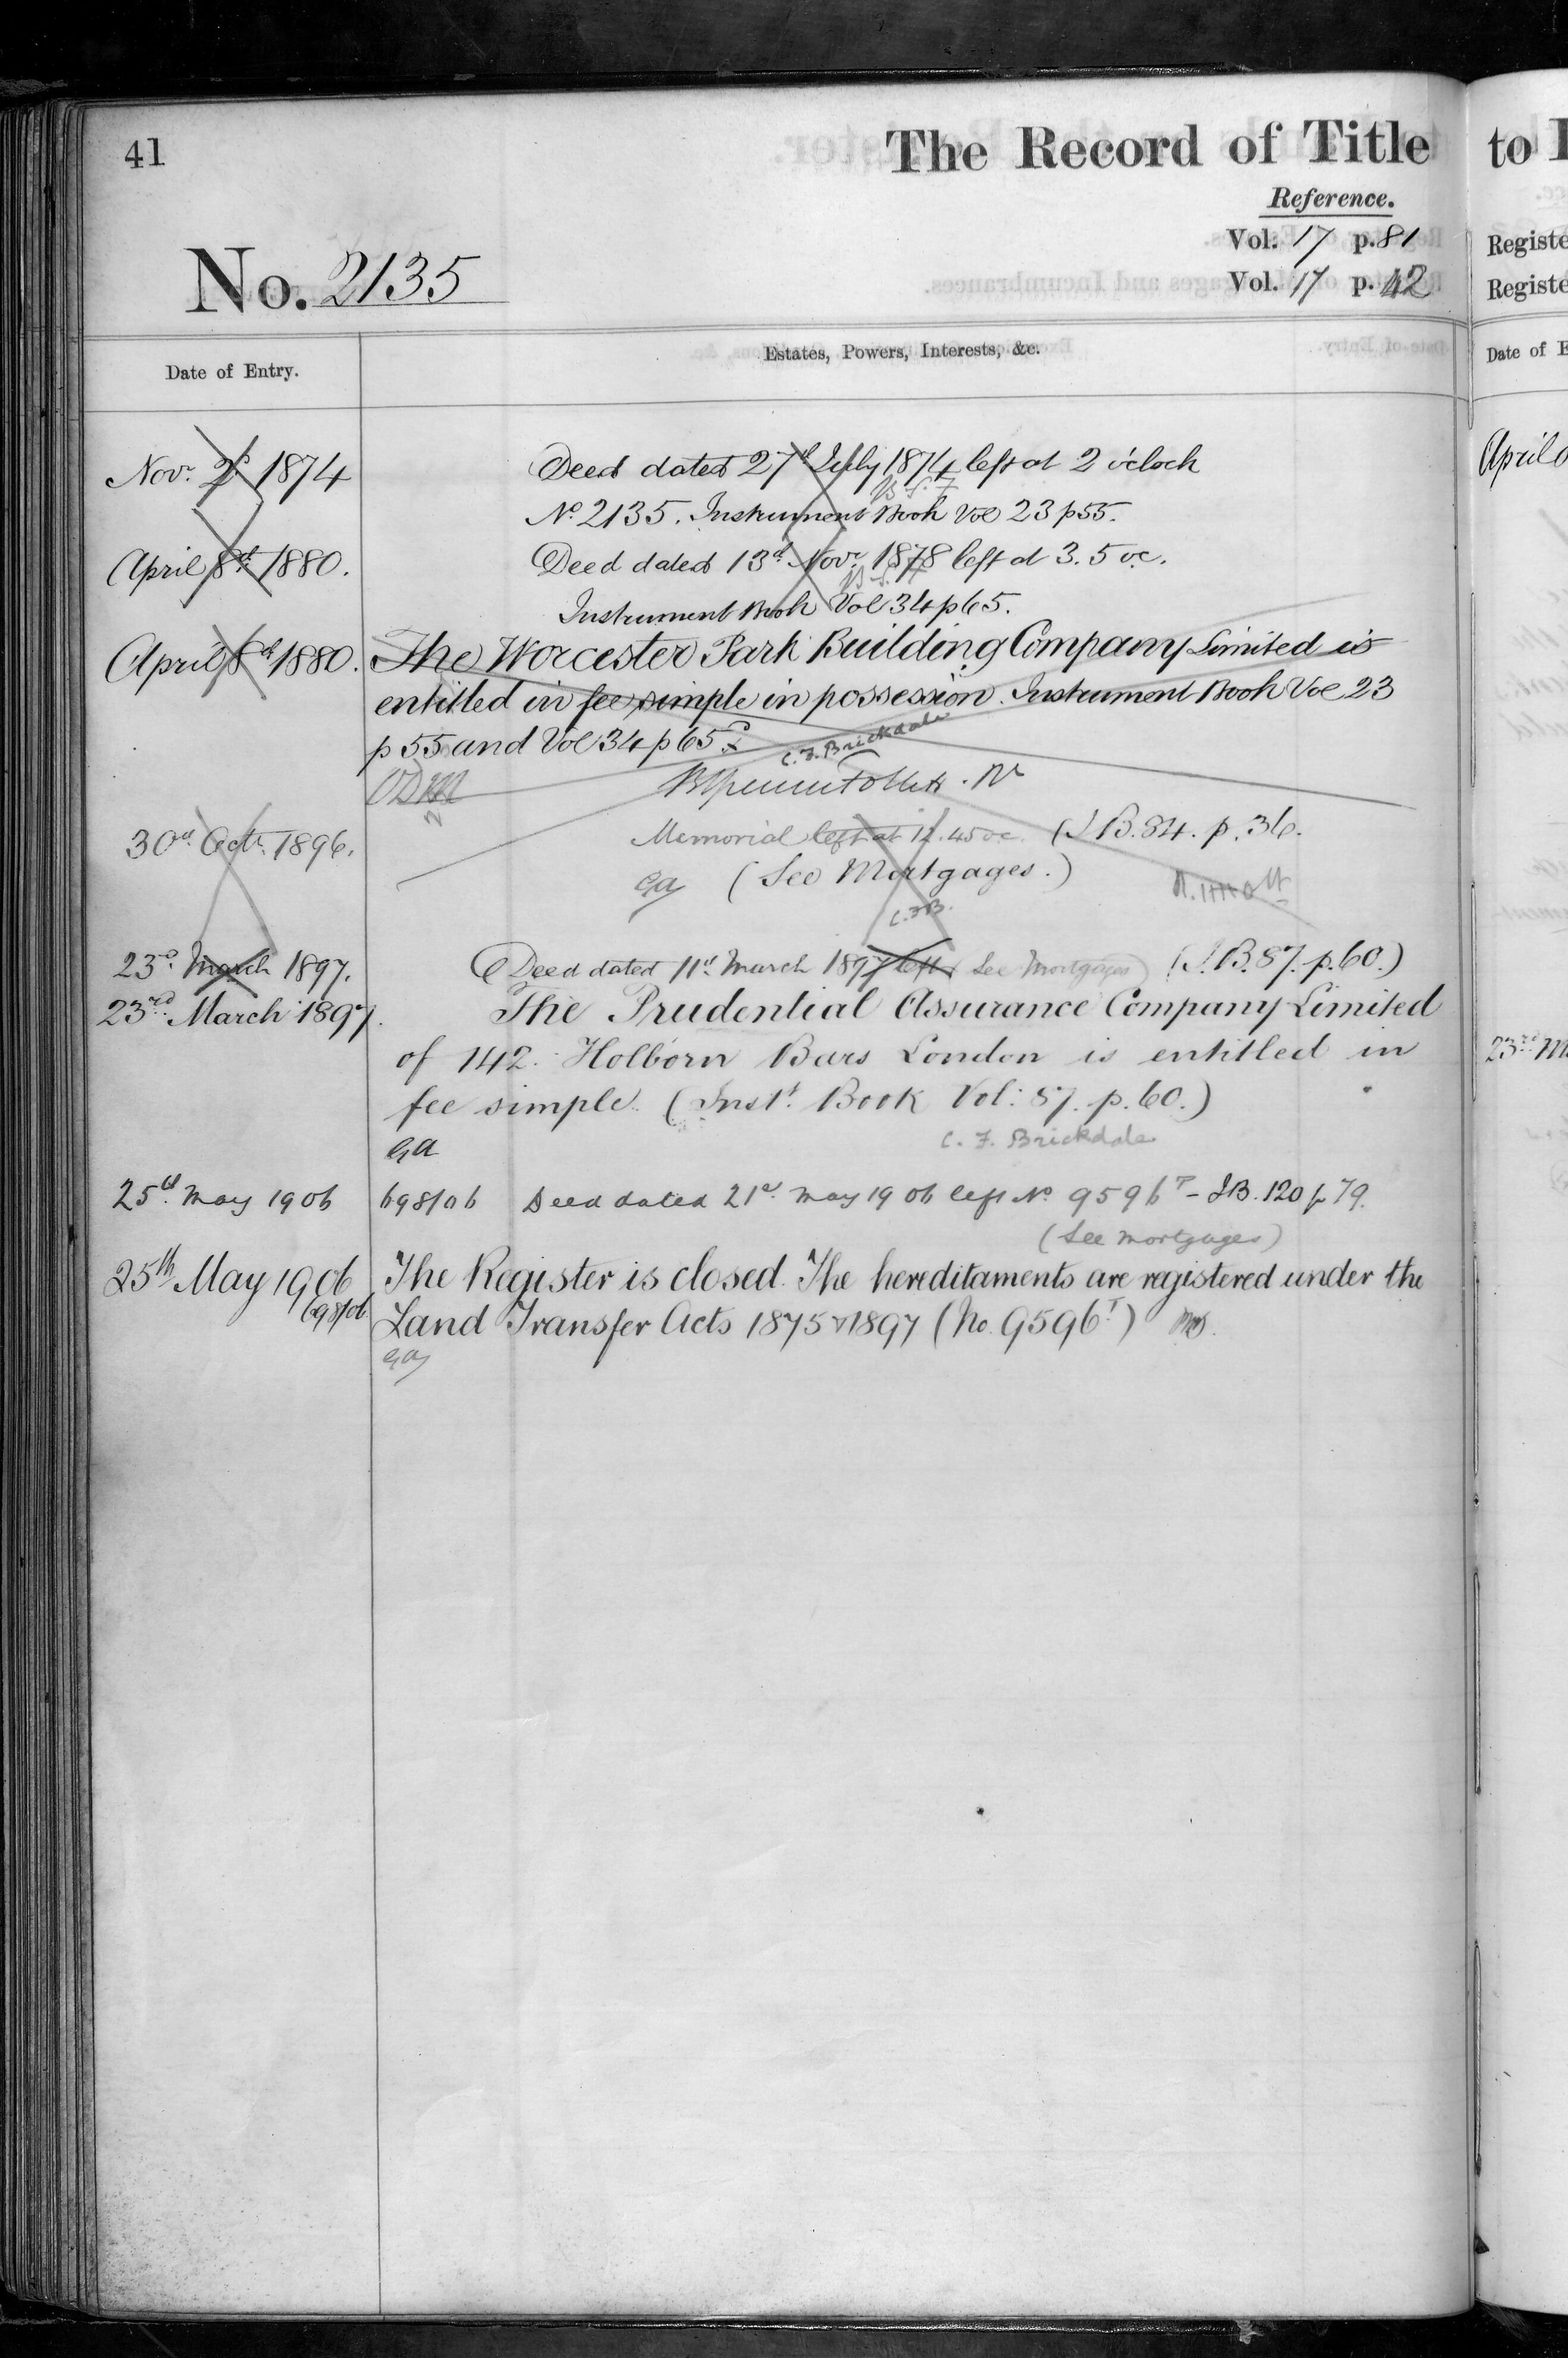 41
The Record of Title
Reference.
Vol. 17 p. 81
No. 2135
Vol. 17 p. 42
Date of Entry.
Estates, Powers, Interests, &c.
Nov. 2d 1874
Deed dated 27th July 1874 left at 2 o'clock
No 2135. Instrument Book Vol 23 p 55.
April 8th 1880.
Deed dated 13th Novr. 1878 left at 3.5 oc.
Instrument Book Vol 34 p 65.
April 8th 1880.
The Worcester Park Building Company Limited is
entitled in fee simple in possession. Instrument Book Vol 23
p 55 and Vol 34 p 65
C. F. Brickdale
30th Octr. 1896.
Memorial left at 12.45 oc. (I.B. 84. p. 36.
ga (See Mortgages.)
C.F.B.
23d. March 1897.
Deed dated 11th March 1897 left (See Mortgages) (I.B. 87. p. 60.)
23rd March 1897.
The Prudential Assurance Company Limited
of 142. Holborn Bars London is entitled in
fee simple. (Inst. Book Vol: 87. p. 60.)
ga
C. F. Brickdale
25th May 1906
698/06 Deed dated 21st May 1906 left No 9596T - I.B. 120 p 79.
(See mortgages)
25th May 1906
698/06
The Register is closed. The hereditaments are registered under the
Land Transfer Acts 1875 & 1897 (No. 9596T)
ga
to
Registe
Registe
Date of E
April
23rd M